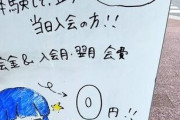 体験して、
当日入会の方!!
会金&入会月・翌月 会費
0円!!